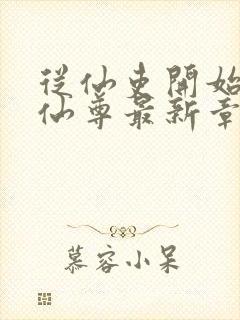 從仙吏開始
仙尊最新章
慕容小呆